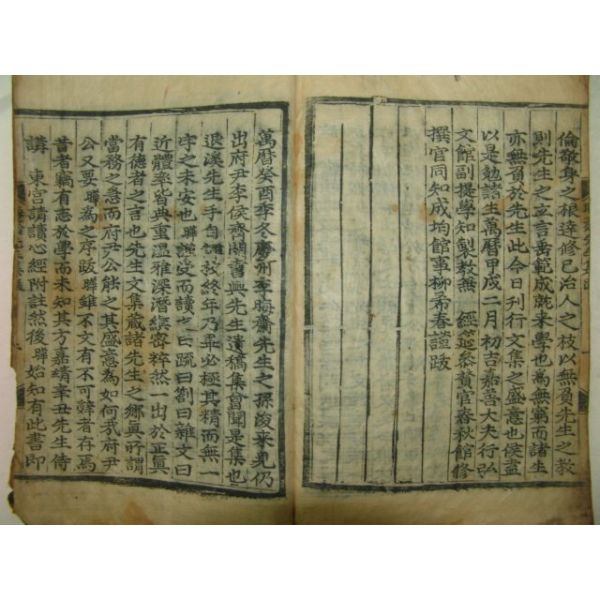 倫敬身之根達修己治人之枝以無負先生之教
則先生之立言垂範成就来學也為無窮而諸生
亦無負於先生此今日刊行文集之盛意也侯盍
以是勉諸生萬曆甲戌二月初吉嘉善大夫行弘
文館副提學知製教無 經筵參賛官春秋館修
撰官同知成均館事柳希春謹跋
萬曆癸酉季冬慶州李晦齋先生之孫浚来見仍
出府尹李侯齊閔書與先生遺稿集曾聞是集也
退溪先生手自讎校終年乃畢必極其精而無一
字之未安也聯謹受而讀之曰疏曰劄曰雜文曰
近體率皆典重溫雅深潛縝密粹然一出於正真
有德者之言也先生文集蔵諸先生之鄉真所謂
當務之急而府尹公能之其盛意為如何哉府尹
公又要聯為之序跋聯雖不文有不可辤者存焉
昔者竊有志於學而未知其方嘉靖辛丑先生侍
講 東宮請讀心經附註然後聯始知有此書即